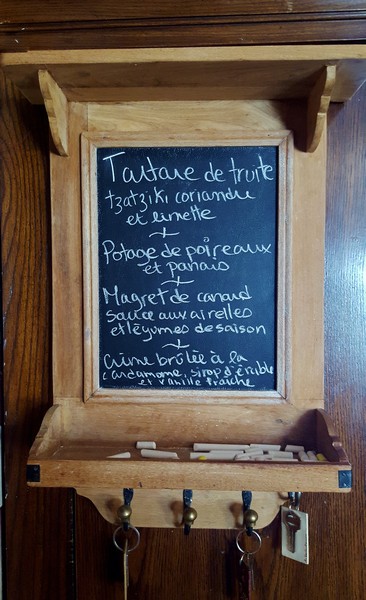 Tartare de truite
tzatziki coriandre
et limette
Potage de poireaux
et panais
Magret de canard
sauce aux airelles
et légumes de saison
Crème brûlée à la
cardamome, sirop d'érable
et vanille fraîche